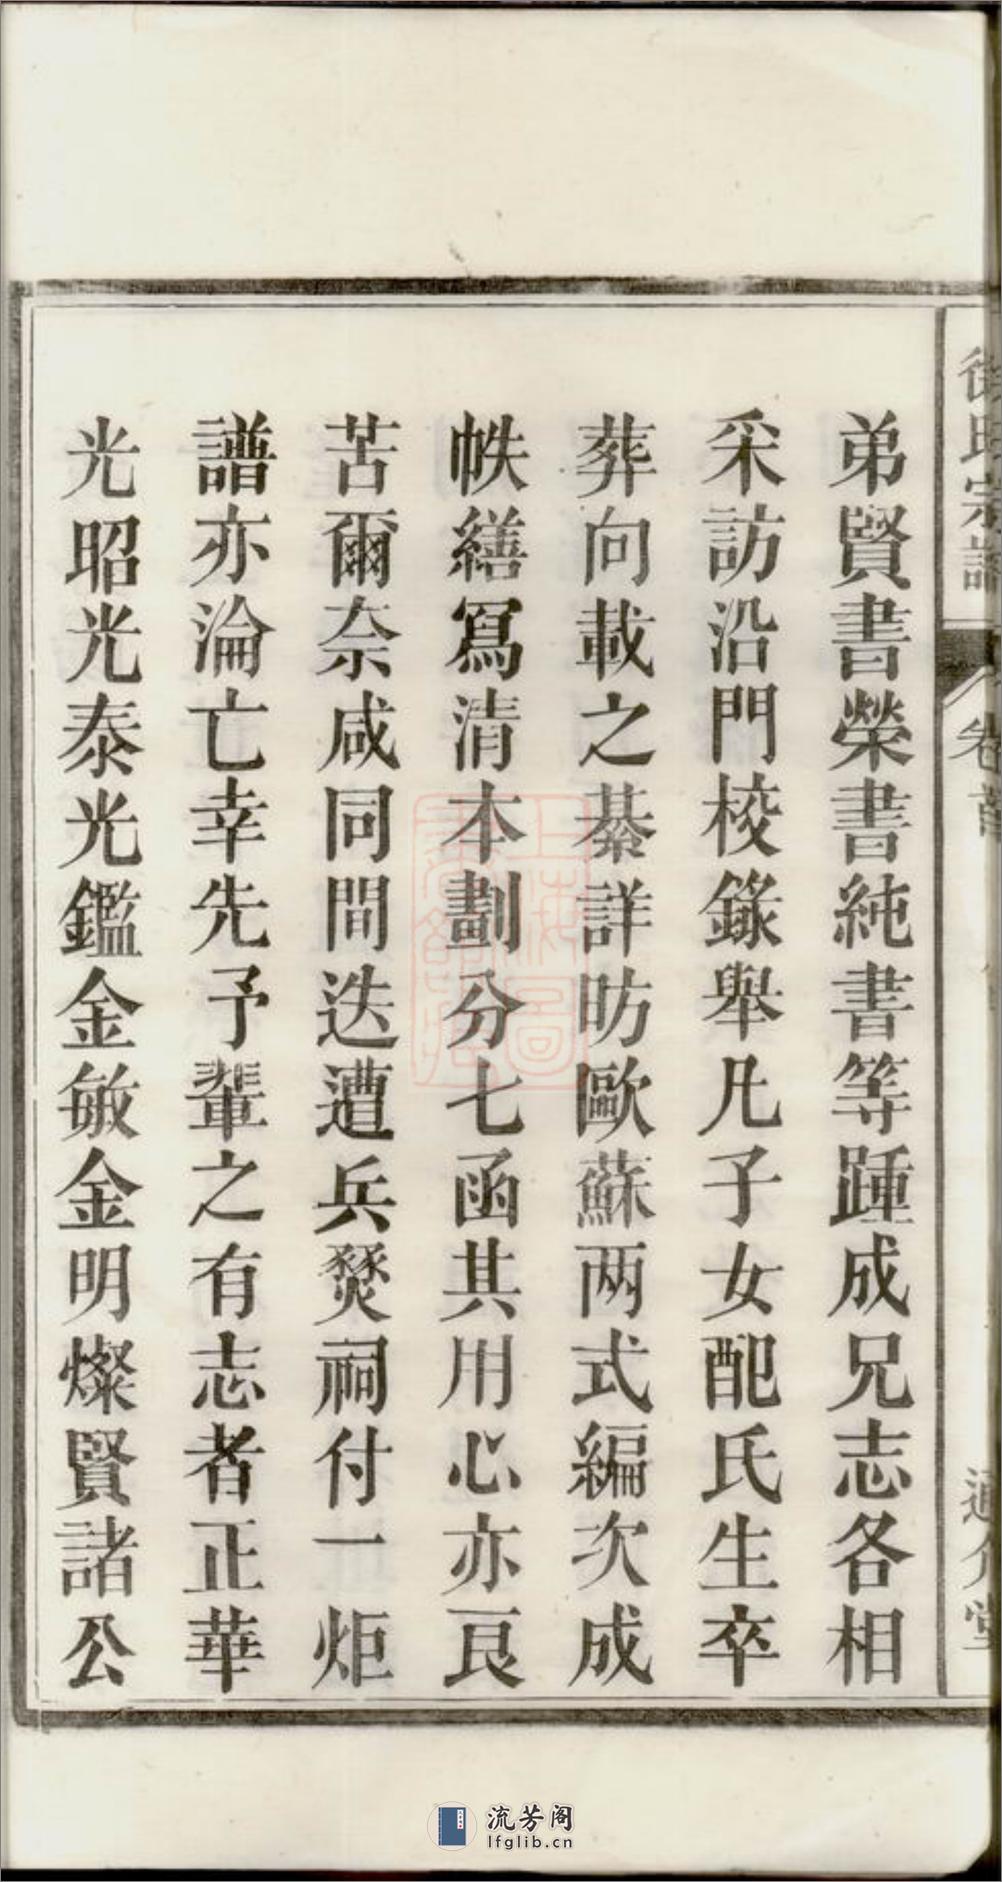 徐氏宗譜
卷首
通介堂
弟賢書榮書純書等踵成兄志各相
采訪沿門校錄舉凡子女配氏生卒
葬向載之綦詳昉歐蘇兩式編次成
帙繕寫清本劃分七函其用心亦良
苦爾奈咸同間迭遭兵燹祠付一炬
譜亦淪亡幸先予輩之有志者正華
光昭光泰光鑑金敏金明燦賢諸公
上海圖
書館藏
流芳阁
lfglib.cn